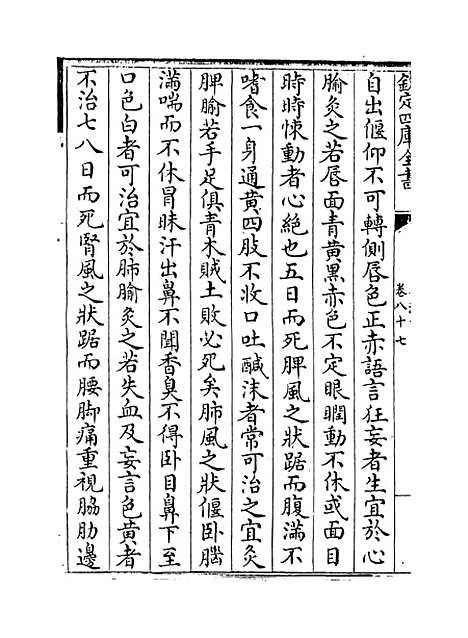 欽定四庫全書
卷八十七
自出偃仰不可轉側唇色正赤語言狂妄者生宜於心
腧灸之若唇面青黄黑赤色不定眼瞤動不休或面目
時時悚動者心絶也五日而死脾風之狀踞而腹滿不
嗜食一身通黄四肢不收口吐鹹沫者常可治之宜灸
脾腧若手足俱青木賊土敗必死矣肺風之狀偃卧𦛨
滿喘而不休冒昧汗出鼻不聞香臭不得卧目鼻下至
口色白者可治宜於肺腧灸之若失血及妄言色黄者
不治七八日而死腎風之狀踞而腰脚痛重視脇肋邊